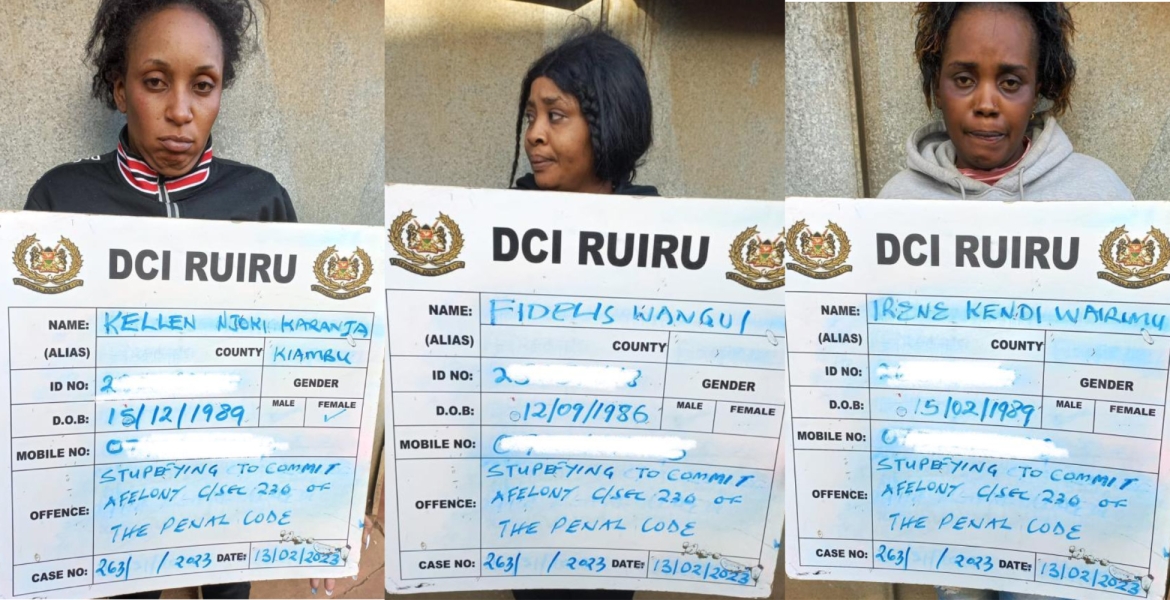 DCI RUIRU
NAME: KELLEN NJOKI KARANJA
(ALIAS) COUNTY KIAMBU
ID NO: 2 GENDER
D.O.B: 15/12/1989 MALE FEMALE ✓
MOBILE NO: 0
OFFENCE: STUPEFYING TO COMMIT
AFELONY C/SEC 230 OF
THE PENAL CODE
CASE NO: 263/ / 2023 DATE: 13/02/2023
DCI RUIRU
NAME: FIDELIS WANGUI
(ALIAS) COUNTY
ID NO: 2 GENDER
D.O.B: 12/09/1986 MALE FEMALE
MOBILE NO: 0
OFFENCE: STUPEFYING TO COMMIT
AFELONY C/SEC 230 OF
THE PENAL CODE
CASE NO: 263/ / 2023 DATE: 13/02/2023
DCI RUIRU
NAME: IRENE KENDI WAIRIMU
(ALIAS) COUNTY
ID NO: 2 GENDER
D.O.B: 15/02/1989 MALE FEMALE
MOBILE NO: 0
OFFENCE: STUPEFYING TO COMMIT
AFELONY C/SEC 230 OF
THE PENAL CODE
CASE NO: 263/ / 2023 DATE: 13/02/2023